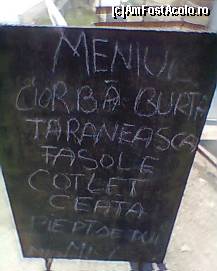 (c)AmFostAcolo.ro
MENIU
CIORBĂ BURTĂ
TARANEASCA
FASOLE
COTLET
CEAFA
PIEPT DE PUI